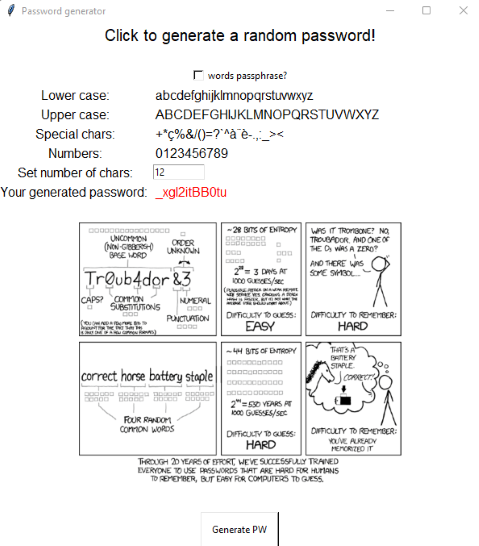 Password generator
Click to generate a random password!
words passphrase?
Lower case: abcdefghijklmnopqrstuvwxyz
Upper case: ABCDEFGHIJKLMNOPQRSTUVWXYZ
Special chars: +*ç%&/()=?`^à¨è-.,:_><
Numbers: 0123456789
Set number of chars: 12
Your generated password: _xgl2itBB0tu
UNCOMMON
(NON-GIBBERISH)
BASE WORD
ORDER
UNKNOWN
Tr0ub4dor &3
CAPS?
COMMON
SUBSTITUTIONS
NUMERAL
PUNCTUATION
~28 BITS OF ENTROPY
2^28 = 3 DAYS AT
1000 GUESSES/SEC
DIFFICULTY TO GUESS:
EASY
WAS IT TROMBONE? NO,
TROUBADOR. AND ONE OF
THE Os WAS A ZERO?
AND THERE WAS
SOME SYMBOL...
DIFFICULTY TO REMEMBER:
HARD
correct horse battery staple
FOUR RANDOM
COMMON WORDS
~44 BITS OF ENTROPY
2^44 = 550 YEARS AT
1000 GUESSES/SEC
DIFFICULTY TO GUESS:
HARD
THAT'S A
BATTERY
STAPLE.
CORRECT!
DIFFICULTY TO REMEMBER:
YOU'VE ALREADY
MEMORIZED IT
THROUGH 20 YEARS OF EFFORT, WE'VE SUCCESSFULLY TRAINED
EVERYONE TO USE PASSWORDS THAT ARE HARD FOR HUMANS
TO REMEMBER, BUT EASY FOR COMPUTERS TO GUESS.
Generate PW